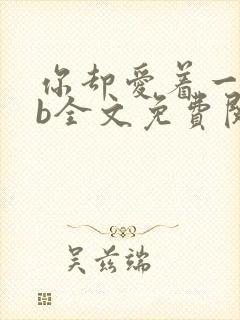 你却爱着一
b全文免费阅
吴兹端